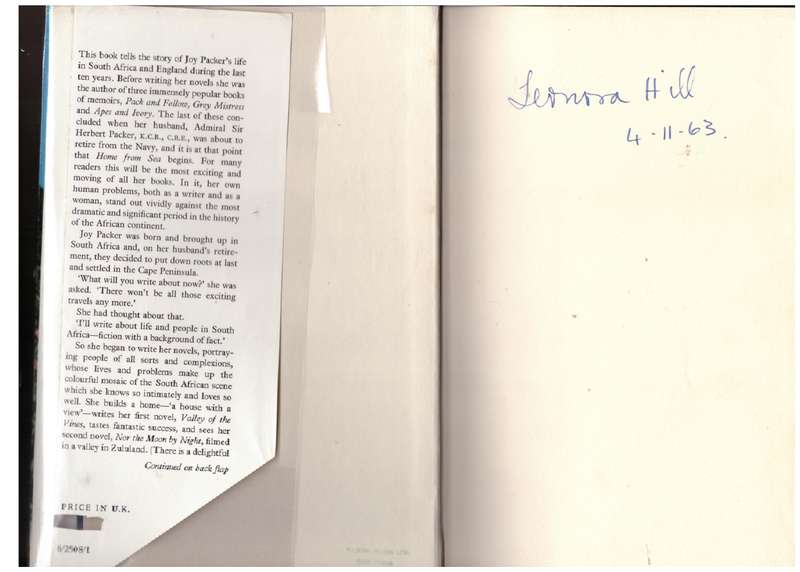 This book tells the story of Joy Packer's life
in South Africa and England during the last
ten years. Before writing her novels she was
the author of three immensely popular books
of memoirs, Pack and Follow, Grey Mistress
and Apes and Ivory. The last of these con-
cluded when her husband, Admiral Sir
Herbert Packer, K.C.B., C.B.E., was about to
retire from the Navy, and it is at that point
that Home from Sea begins. For many
readers this will be the most exciting and
moving of all her books. In it, her own
human problems, both as a writer and as a
woman, stand out vividly against the most
dramatic and significant period in the history
of the African continent.
Joy Packer was born and brought up in
South Africa and, on her husband's retire-
ment, they decided to put down roots at last
and settled in the Cape Peninsula.
'What will you write about now?' she was
asked. 'There won't be all those exciting
travels any more.'
She had thought about that.
'I'll write about life and people in South
Africa—fiction with a background of fact.'
So she began to write her novels, portray-
ing people of all sorts and complexions,
whose lives and problems make up the
colourful mosaic of the South African scene
which she knows so intimately and loves so
well. She builds a home—'a house with a
view'—writes her first novel, Valley of the
Vines, tastes fantastic success, and sees her
second novel, Nor the Moon by Night, filmed
in a valley in Zululand. (There is a delightful
Continued on back flap
PRICE IN U.K.
6/2508/1
Leonora Hill
4-11-63.